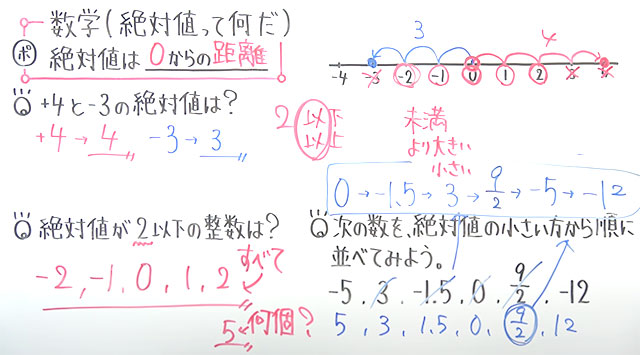 数学(絶対値って何だ)
ポ 絶対値は 0からの距離
3 4
-4 -3 -2 -1 0 1 2 3 4
+4と-3の絶対値は?
+4→4 -3→3
2 以下
以上
未満
より大きい
小さい
0→-1.5→3→9/2→-5→-12
絶対値が2以下の整数は?
-2,-1,0,1,2 すべて
5 何個?
次の数を、絶対値の小さい方から順に
並べてみよう。
-5,3,-1.5,0,9/2,-12
5,3,1.5,0,9/2,12